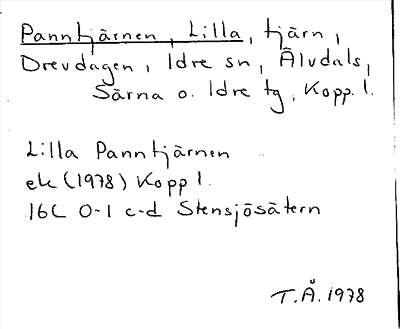 Panntjärnen, Lilla, tjärn,
Drevdagen, Idre sn, Älvdals,
Särna o. Idre tg, Kopp. l.
Lilla Panntjärnen
ek (1978) Kopp l.
16C 0-1 c-d Stensjösätern
T.Å. 1978